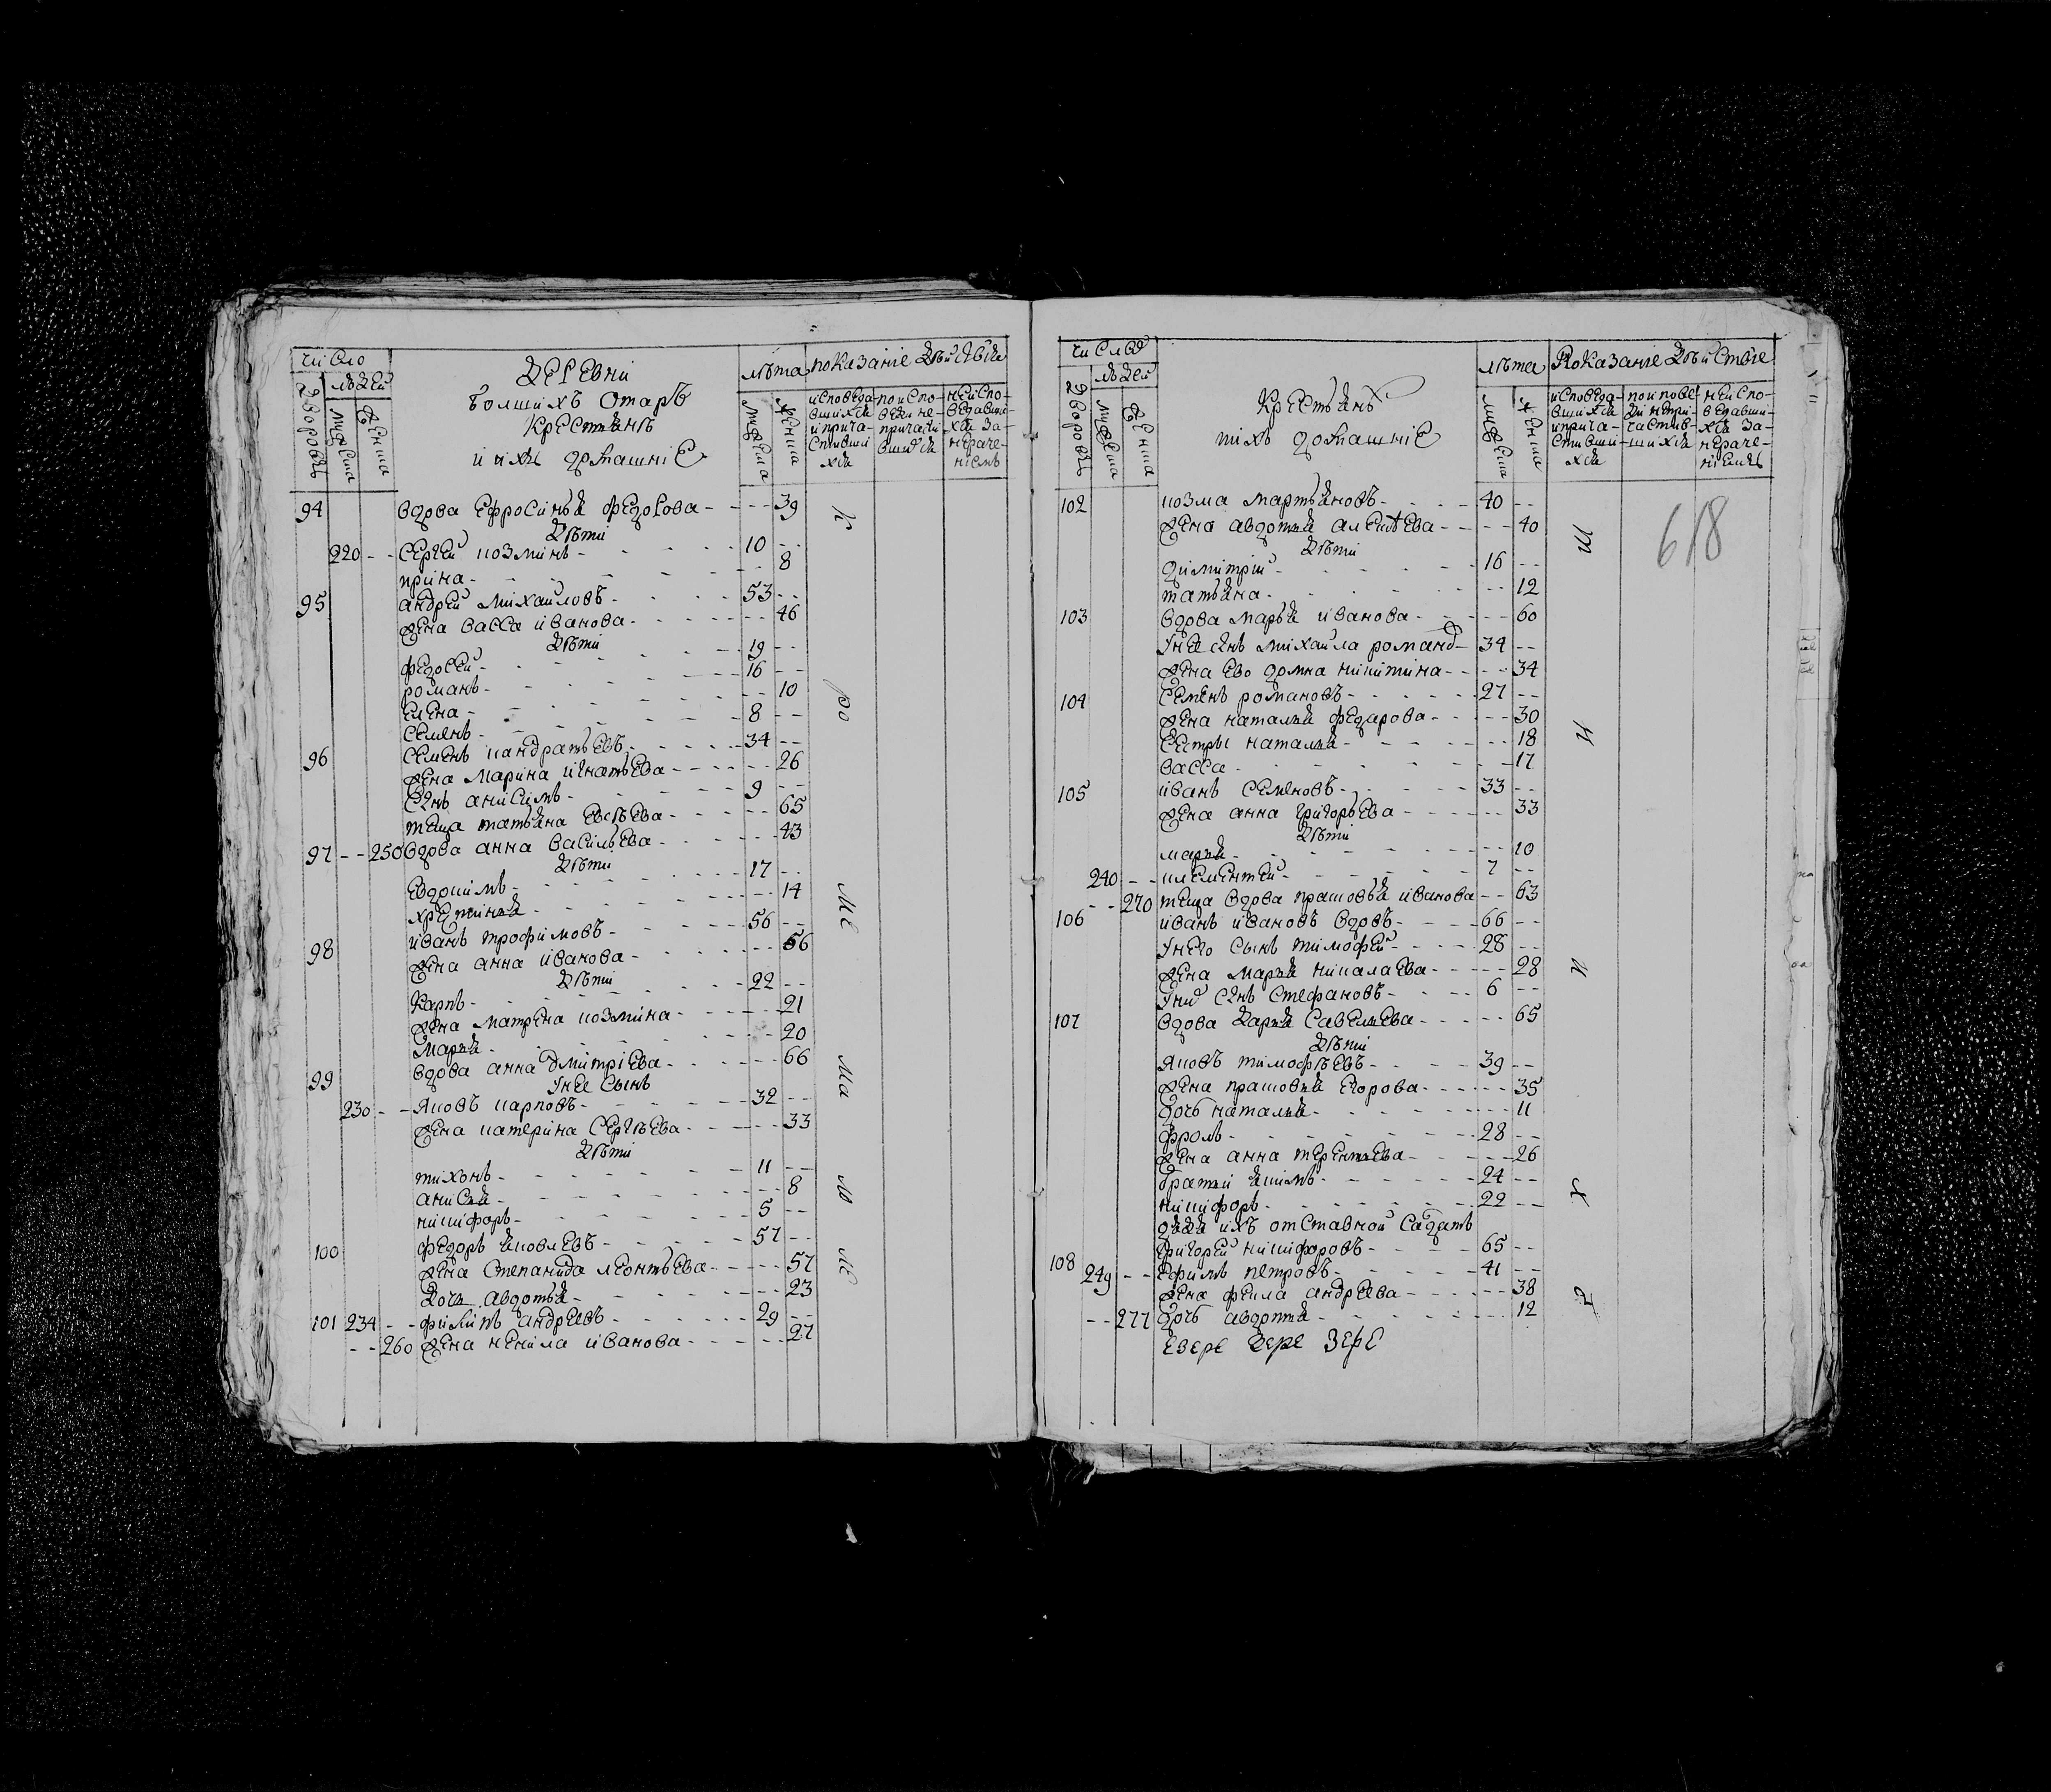 число
людей
дворовъ
мужеска
женска
деревни
болшихъ отаръ
крестьянъ
и ихъ домашние
лѣта
мужеска
женска
показание действия
исповеда-
вшихся
и прича-
стивши
хся
по испо-
веди не
причасти
вшихся
не испо-
ведавши-
хся за
нераче-
ниемъ
94 вдова ефросинья федорова - - - 39
дѣти
220 - - сергей козминъ - 10 - -
ирина - - - 8
95 андрей михайловъ - 53 - -
жена васса иванова - - - 46
дѣти
федосей - 19 - -
романъ - 16 - -
елена - - - 10
семенъ - 8 - -
96 семенъ кандратьевъ - 34 - -
жена марина игнатьева - - - 26
сынъ анисимъ - 9 - -
теща татьяна евсѣева - - - 65
97 - - 250 вдова анна васильева - - - 43
дѣти
евдокимъ - 17 - -
христинья - - - 14
98 иванъ трофимовъ - 56 - -
жена анна иванова - - - 56
дѣти
карпъ - 22 - -
жена матрена козмина - - - 21
марья - - - 20
99 вдова анна дмитриева - - - 66
у нея сынъ
230 - - яковъ карповъ - 32 - -
жена катерина сергѣева - - - 33
дѣти
тихонъ - 11 - -
анисья - - - 8
никифоръ - 5 - -
100 федоръ яковлевъ - 57 - -
жена степанида леонтьева - - - 57
дочь авдотья - - - 23
101 234 - - филипъ андреевъ - 29 - -
- - 260 жена ненила иванова - - - 27
число
людей
дворовъ
мужеска
женска
крестьянъ
ихъ домашние
лѣта
мужеска
женска
показание действие
исповеда-
вшихся
и прича-
стивши-
хся
не испо-
ведавши-
хся за
нераче-
ниемъ
618
102 козма мартьяновъ - 40 - -
жена авдотья алексѣева - - - 40
дѣти
димитрий - 16 - -
татьяна - - - 12
103 вдова марья иванова - - - 60
у нея сынъ михаила романо - 34 - -
жена ево домна никитина - - - 34
104 семенъ романовъ - 27 - -
жена наталья федарова - - - 30
сестры наталья - - - 18
васса - - - 17
105 иванъ семеновъ - 33 - -
жена анна григорьева - - - 33
дѣти
марья - - - 10
240 - - клементей - 7 - -
- - 270 теща вдова прасковья иванова - - 63
106 иванъ ивановъ вдовъ - 66 - -
у него сынъ тимофей - 28 - -
жена марья николаева - - - 28
у ний сынъ стефановъ - 6 - -
107 вдова дарья савельева - - - 65
дѣти
яковъ тимофѣевъ - 39 - -
жена прасковья егорова - - - 35
дочь наталья - - - 11
фролъ - 28 - -
жена анна терентьева - - - 26
братья якимъ - 24 - -
никифоръ - 22 - -
дядя ихъ отставной салдатъ
григорей никифоровъ - 65 - -
108 249 - - ефимъ петровъ - 41 - -
жена фекла андрѣева - - - 38
- - 277 дочь авдотья - - - 12